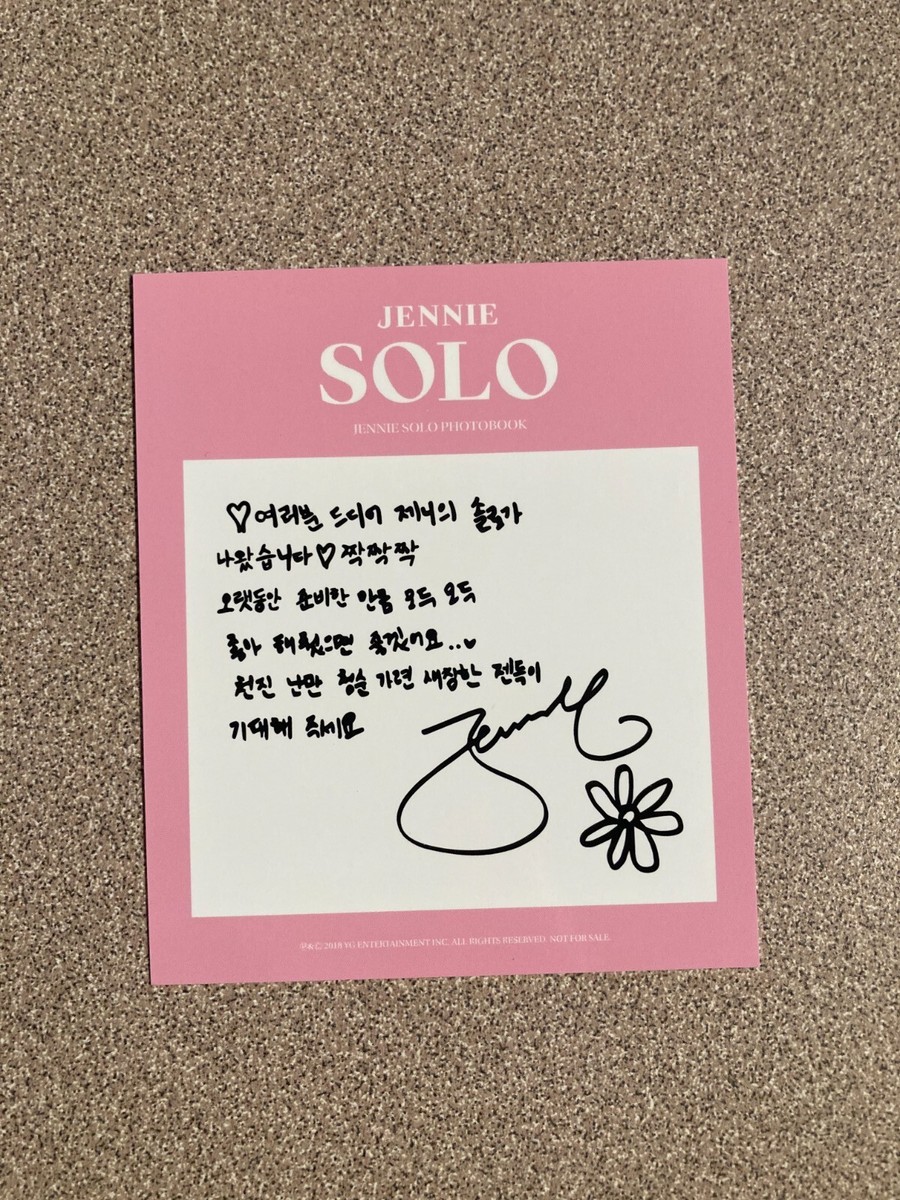 JENNIE
SOLO
JENNIE SOLO PHOTOBOOK
♡여러분 드디어 제니의 솔로가
나왔습니다♡짝짝짝
오랫동안 준비한 만큼 모두 모두
좋아 해줬으면 좋겠어요..♥
천진 난만 청순 가련 새침한 젠득이
기대해 주세요
Jennie
℗&© 2018 YG ENTERTAINMENT INC. ALL RIGHTS RESERVED. NOT FOR SALE.